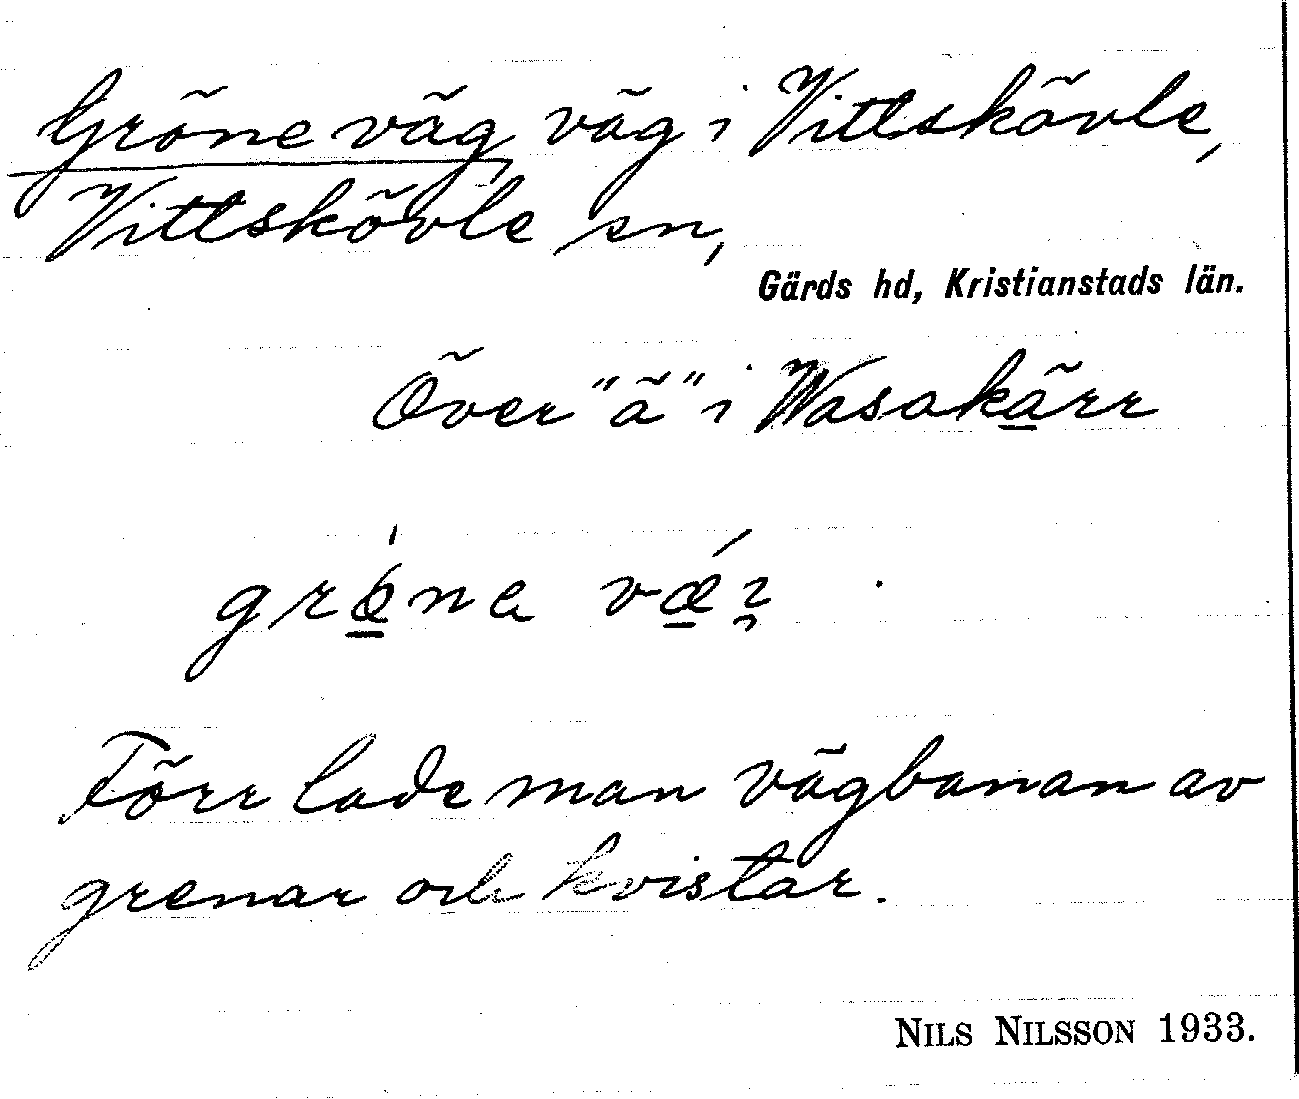 Gröne väg, väg i Vittskövle,
Vittskövle sn,
Gärds hd, Kristianstads län.
Över "ä" i Wasakärr
Förr lade man vägbanan av
grenar och kvistar.
NILS NILSSON 1933.